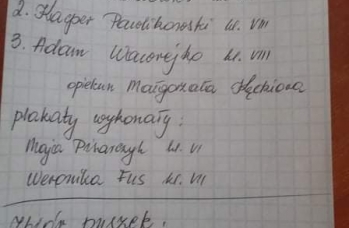 2. Kacper Pawlikowski kl. VIII
3. Adam Wawrejko kl. VIII
opiekun Małgorzata
plakaty wykonały:
Maja Pisarczyk kl. VI
Weronika Fus kl. VII
puszek.